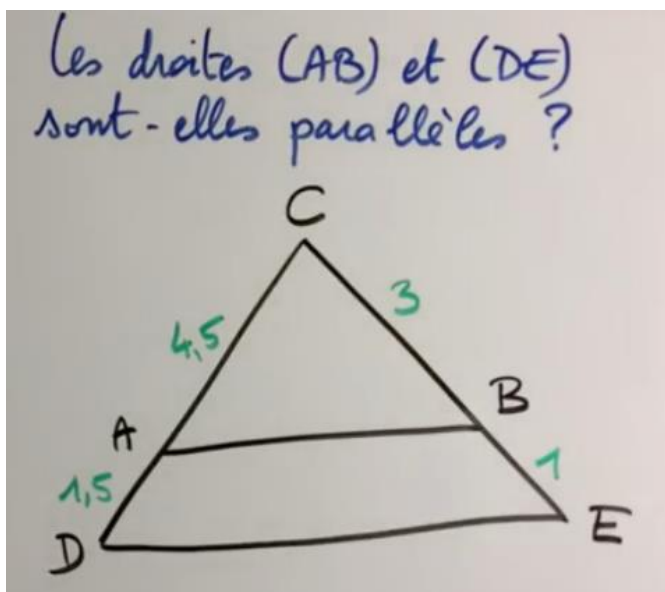 Les droites (AB) et (DE)
sont-elles parallèles ?
C
4,5
3
A
B
1,5
1
D
E